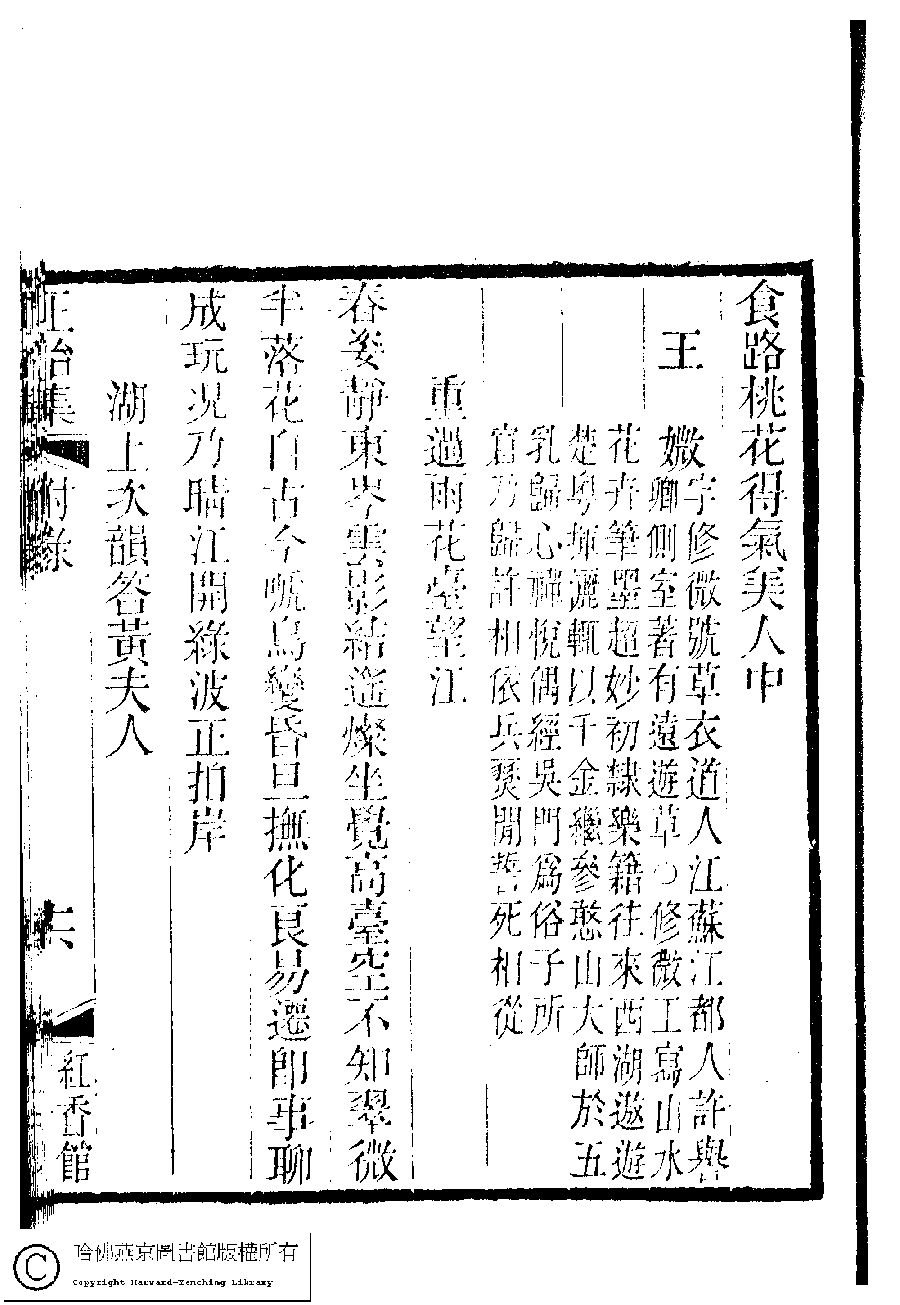 食路桃花得氣美人中
王　媺
字修微號草衣道人江蘇江都人許譽
卿側室著有遠遊草○修微工寫山水
花卉筆墨超妙初隸樂籍往來西湖遨遊
楚粤揮灑輒以千金繼參憨山大師於五
乳歸心禪悅偶經吳門爲俗子所
窘乃歸許相依兵燹間誓死相從
重過雨花臺望江
春姿靜東岑雲影結遙燦坐覺高臺空不知翠微
半落花自古今蚖鳥變昏旦撫化良易遷卽事聊
成玩況乃晴江開綠波正拍岸
湖上次韻答黃夫人
正始集　附錄
紅香館
哈佛燕京圖書館版權所有
Copyright Harvard-Yenching Library